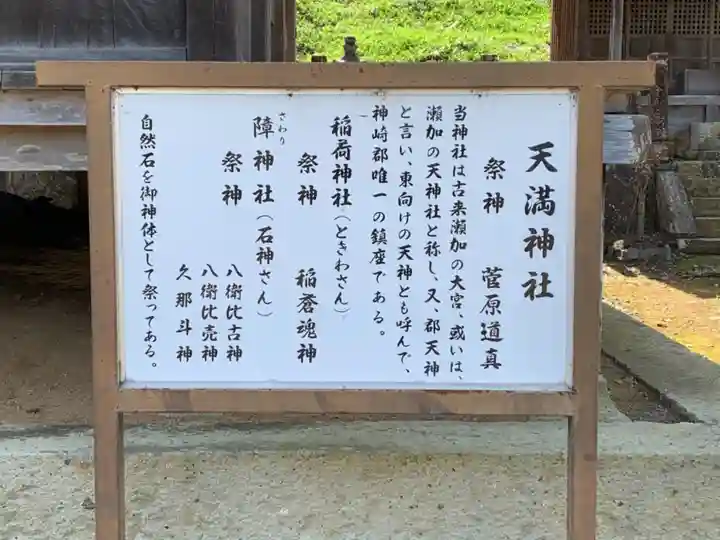 天満神社
祭神 菅原道真
当神社は古来瀬加の大宮、或いは、
瀬加の天神社と称し、又、郡天神
と言い、東向けの天神とも呼んで、
神崎郡唯一の鎮座である。
稲荷神社（ときわさん）
祭神 稲蒼魂神
障神社（石神さん）
さわり
祭神 八衛比古神
八衛比売神
久那斗神
自然石を御神体として祭ってある。